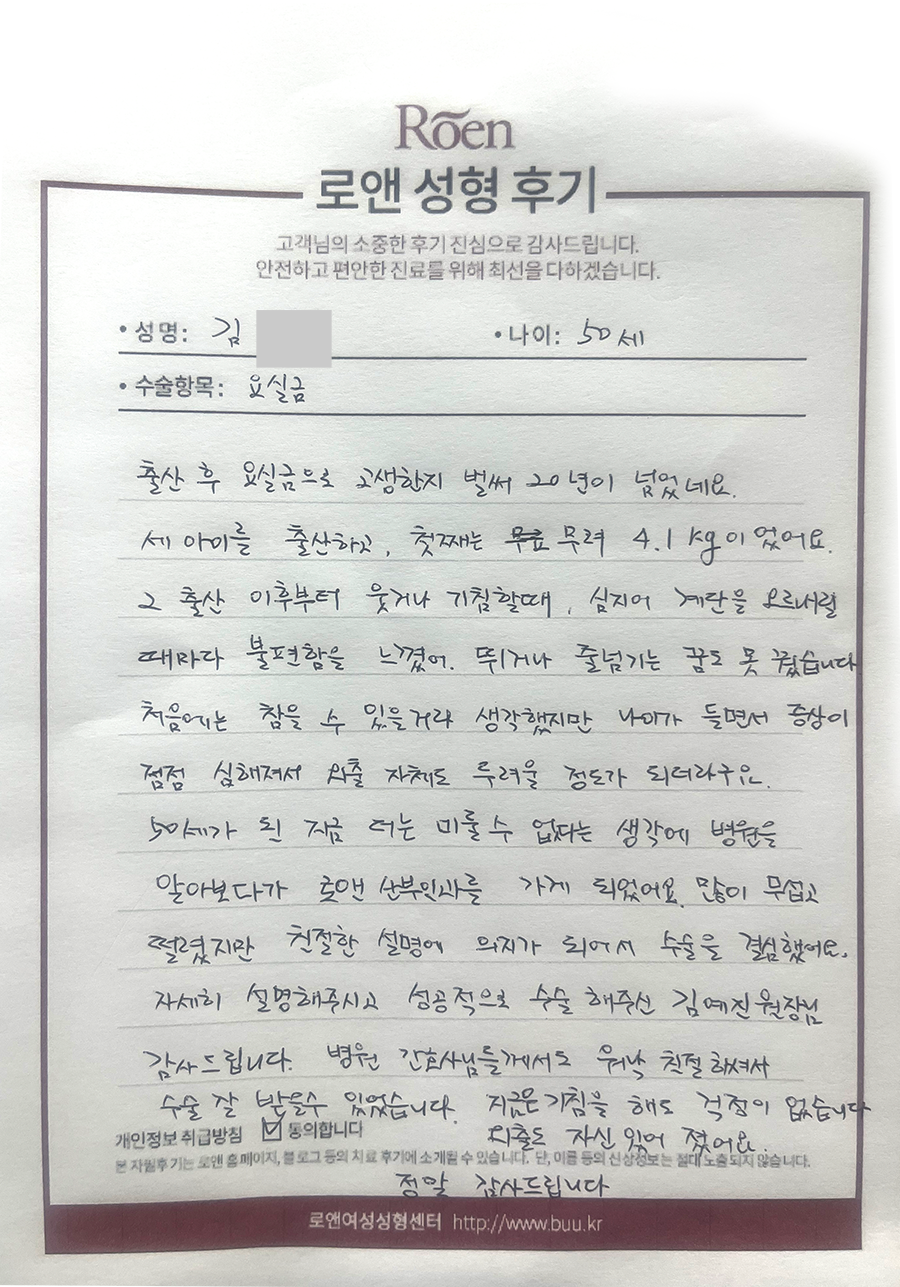 Rōen
로앤 성형 후기
고객님의 소중한 후기 진심으로 감사드립니다.
안전하고 편안한 진료를 위해 최선을 다하겠습니다.
• 성명: 김 • 나이: 50세
• 수술항목: 요실금
출산 후 요실금으로 고생한지 벌써 20년이 넘었네요.
세 아이를 출산하고, 첫째는 무려 4.1kg이었어요.
그 출산 이후부터 웃거나 기침할때, 심지어 계단을 오르내릴
때마다 불편함을 느꼈어. 뛰거나 줄넘기는 꿈도 못 꿨습니다
처음에는 참을 수 있을거라 생각했지만 나이가 들면서 증상이
점점 심해져서 외출 자체도 두려울 정도가 되더라구요.
50세가 된 지금 더는 미룰수 없다는 생각에 병원을
알아보다가 로앤 산부인과를 가게 되었어요. 많이 무섭고
떨렸지만 친절한 설명에 의지가 되어서 수술을 결심했어요.
자세히 설명해주시고 성공적으로 수술 해주신 김예진원장님
감사드립니다. 병원 간호사님들께서도 워낙 친절하셔서
수술 잘 받을수 있었습니다. 지금은 기침을 해도 걱정이 없습니다
개인정보 취급방침 ☑ 동의합니다 외출도 자신있어 졌어요.
본 자필후기는 로앤 홈페이지, 블로그 등의 치료 후기에 소개될 수 있습니다. 단, 이름 등의 신상정보는 절대 노출되지 않습니다.
정말 감사드립니다
로앤여성성형센터 http://www.buu.kr